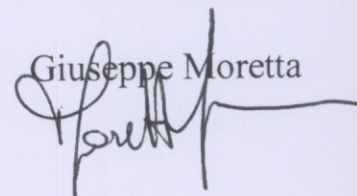 Giuseppe Moretta
Moretta